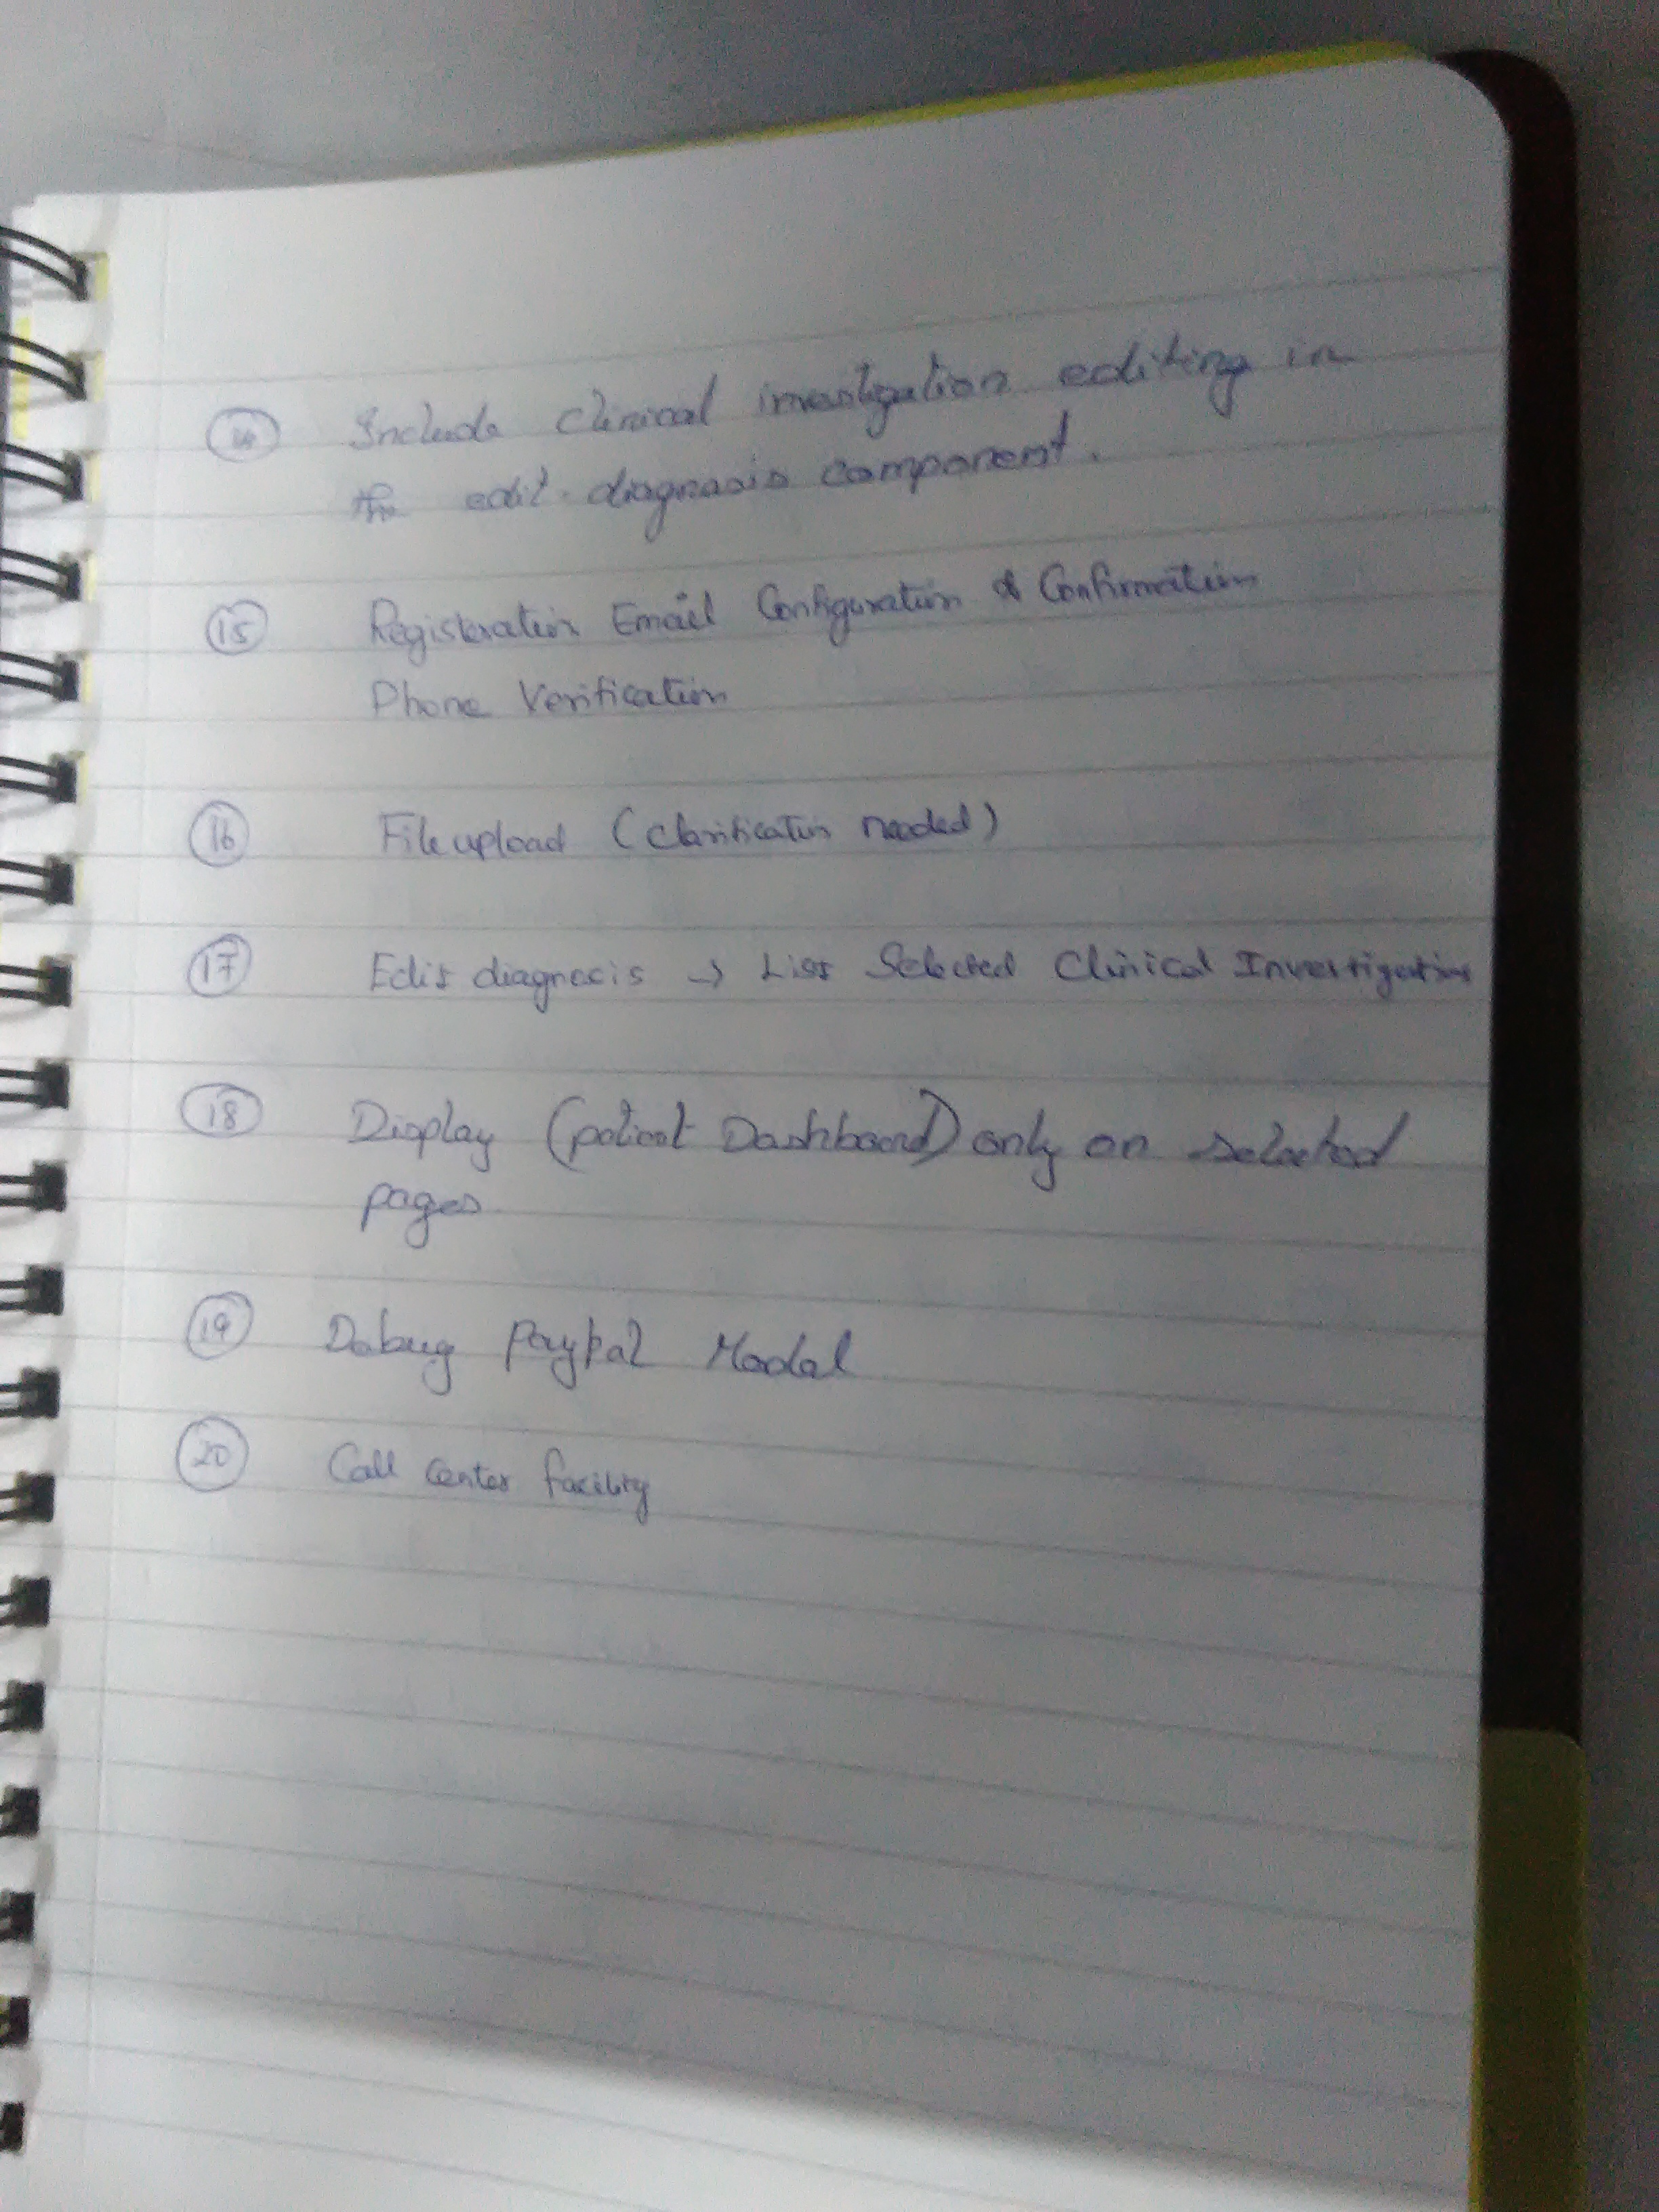 14 Include clinical investigation editing in
the edit diagnosis component.
15 Registeration Email Configuration & Confirmation
Phone Verification
16 File upload (clarification needed)
17 Edit diagnosis → List Selected Clinical Investigations
18 Display (patient Dashboard) only on selected
pages
19 Debug Paypal Modal
20 Call Center facility